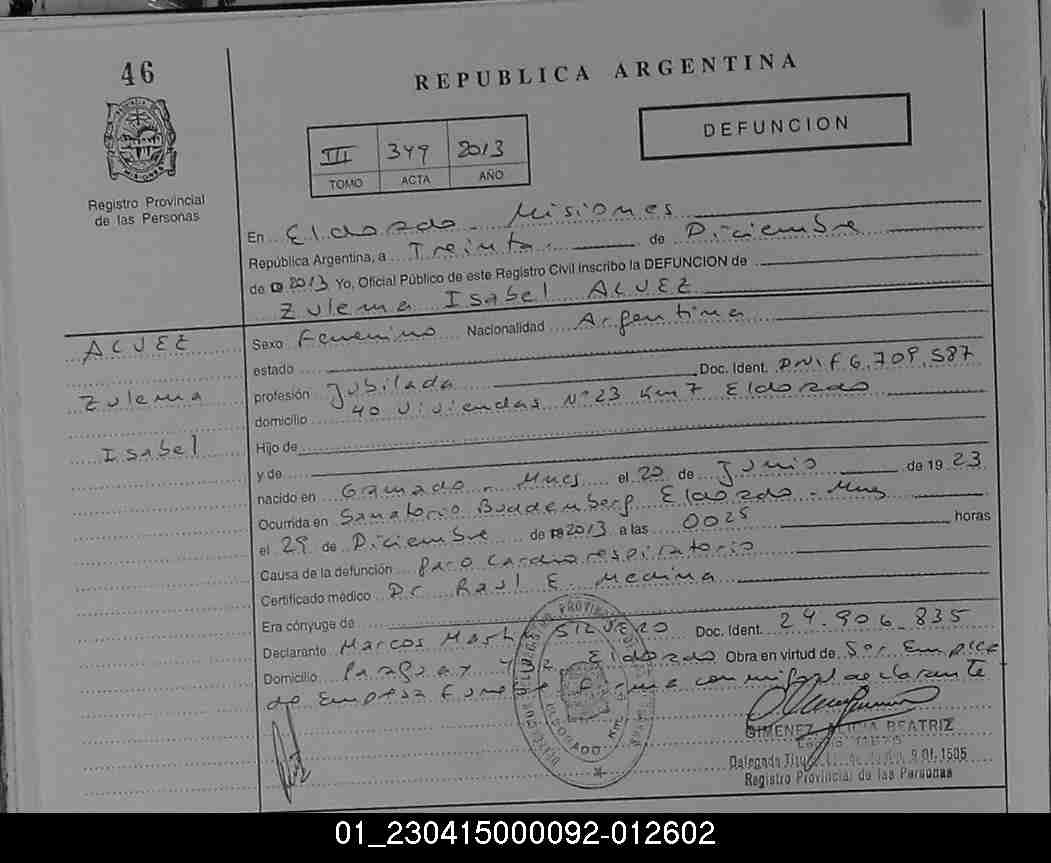 46
REPUBLICA ARGENTINA
DEFUNCION
III 349 2013
TOMO ACTA AÑO
Registro Provincial
de las Personas
En Eldorado - Misiones
República Argentina, a Treinta de Diciembre
de 2013 Yo, Oficial Público de este Registro Civil inscribo la DEFUNCION de
Zulema Isabel ALVEZ
ALVEZ
Zulema
Isabel
Sexo Femenino Nacionalidad Argentina
estado
profesión Jubilada Doc. Ident. DNI F 6.709.587
domicilio 40 Viviendas N° 23 Km 7 Eldorado
Hijo de
y de
nacido en - Mnes el 20 de Junio de 19 23
Ocurrida en Sanatorio Eldorado - Mnes
el 29 de Diciembre de 2013 a las 0025 horas
Causa de la defunción paro cardiorespiratorio
Certificado médico Dr Raul E. Medina
Era cónyuge de
Declarante Marcos SILVERO Doc. Ident. 24.906.835
Domicilio Paraguay Eldorado Obra en virtud de Ser Emplea
do Empresa conmigo el declarante
GIMENEZ ALICIA BEATRIZ
Registro Provincial de las Personas
01_230415000092-012602